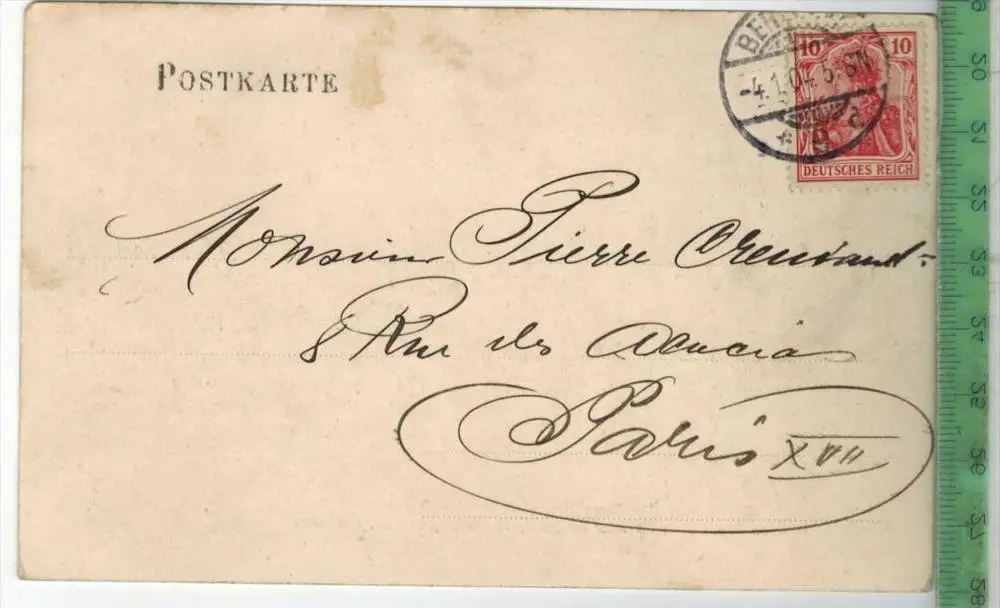 POSTKARTE
10 10
-4.1.04.5-8N
* 9 a
DEUTSCHES REICH
Monsieur Pierre
8 Rue des Acacias
Paris XVII
50
51
52
53
54
55
56
57
58